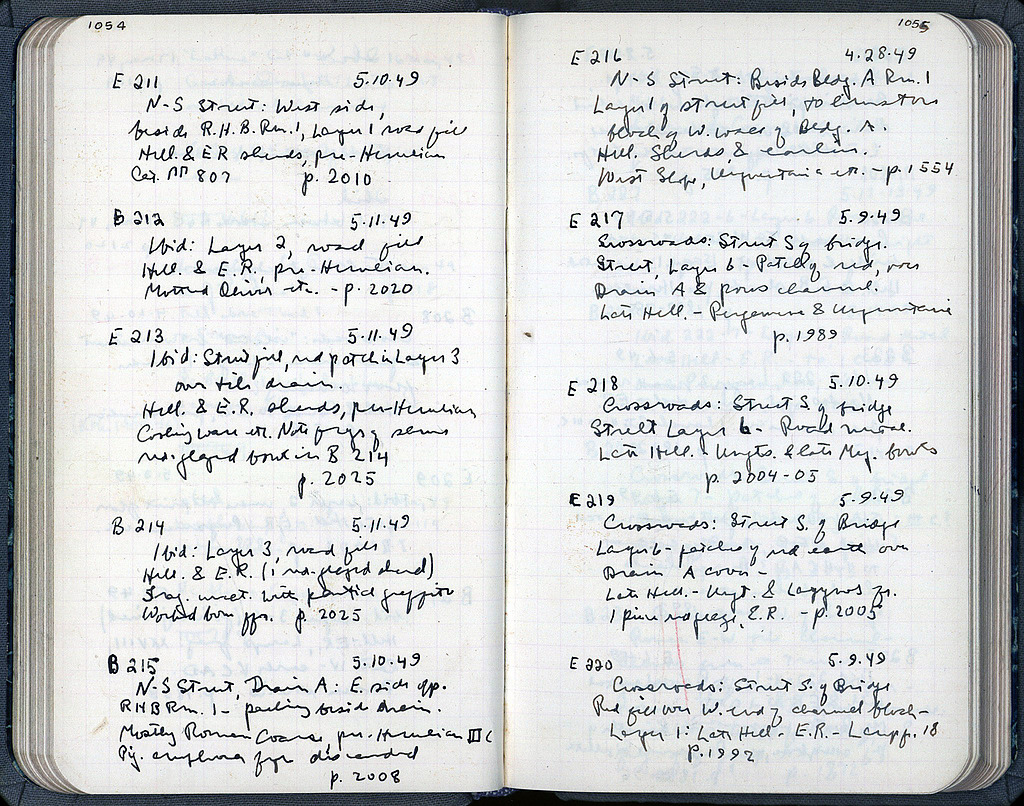 1054
E 211 5.10.49
N-S Street: West side,
beside R.H.B. Rm. 1, Layer 1 road fill
Hell. & ER sherds, pre-Herulian
Cat. 807 p. 2010
B 212 5.11.49
Ibid: Layer 2, road fill
Hell. & E.R., pre-Herulian.
Mottled etc. - p. 2020
E 213 5.11.49
Ibid: Street fill, red patch in Layer 3
over tile drain.
Hell. & E.R. sherds, pre-Herulian
Cooking ware etc. Note frgs of same
red-glazed bowl in B 214
p. 2025
B 214 5.11.49
Ibid: Layer 3, road fill
Hell. & E.R. (1 red-glazed sherd)
Frag. with partial graffito
Worked bone p. 2025
B 215 5.10.49
N-S Street, Drain A: E. side opp.
RHB Rm. 1 - packing beside drain.
Mostly Roman Coarse, pre-Herulian III C
amphora frgs discarded
p. 2008
1055
E 216 4.28.49
N-S Street: Beside Bldg. A Rm. 1
Layer 1 of street fill, to limestone
block of W. wall of Bldg. A.
Hell. Sherds, & earlier.
West Slope, Unguentaria etc. - p. 1554
E 217 5.9.49
Crossroads: Street S of bridge.
Street, Layer 6 - Patch of red, over
Drain A & poros channel.
Late Hell. - Pergamene & Unguentaria
p. 1989
E 218 5.10.49
Crossroads: Street S. of bridge
Street Layer 6 - Road
Late Hell. - Ungts. & late Meg. bowls
p. 2004-05
E 219 5.9.49
Crossroads: Street S. of Bridge
Layer 6 - patches of red earth over
Drain A cover -
Late Hell. - Ungt. & Lagynos fr.
1 piece red glaze, E.R. - p. 2005
E 220 5.9.49
Crossroads: Street S. of Bridge
Red fill over W. end of channel block -
Layer 1: Late Hell. - E.R. - Lamp f. 18
p. 1992